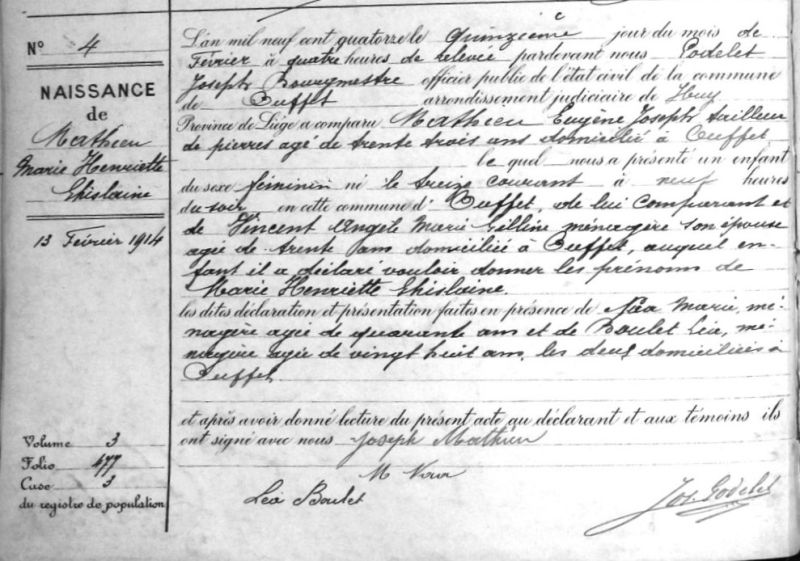 N° 4
NAISSANCE
de
Mathieu
Marie Henriette
Ghislaine
13 Février 1914
Volume 3
Folio 477
Case 3
du registre de population
L'an mil neuf cent quatorze le quinzième jour du mois de
Février à quatre heures de relevée pardevant nous Godelet
Joseph Bourgmestre officier public de l'état civil de la commune
de Ouffet arrondissement judiciaire de Huy
Province de Liége a comparu Mathieu Eugène Joseph tailleur
de pierres agé de trente trois ans domicilié à Ouffet
le quel nous a présenté un enfant
du sexe féminin né le treize courant à neuf heures
du soir en cette commune d'Ouffet, de lui comparant et
de Vincent Angèle Marie ménagère son épouse
agée de trente ans domiciliée à Ouffet, auquel en-
fant il a déclaré vouloir donner les prénoms de
Marie Henriette Ghislaine.
les dites déclaration et présentation faites en présence de Marie, mé-
nagère agée de quarante ans et de Boulet Léa, mé-
nagère agée de vingt huit ans, les deux domiciliées à
Ouffet
et après avoir donné lecture du présent acte au déclarant et aux témoins ils
ont signé avec nous Joseph Mathieu
M
Léa Boulet
Jos. Godelet